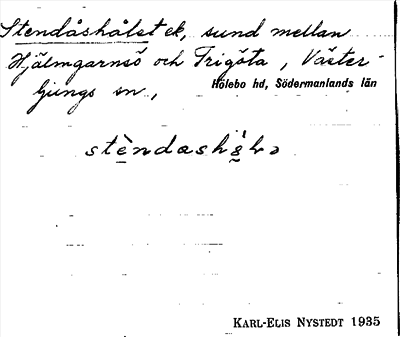 Stendåshålet ek, sund mellan
Hjälmgarnsö och Frigöta, Väster-
ljungs sn,
Hölebo hd, Södermanlands län
KARL-ELIS NYSTEDT 1935